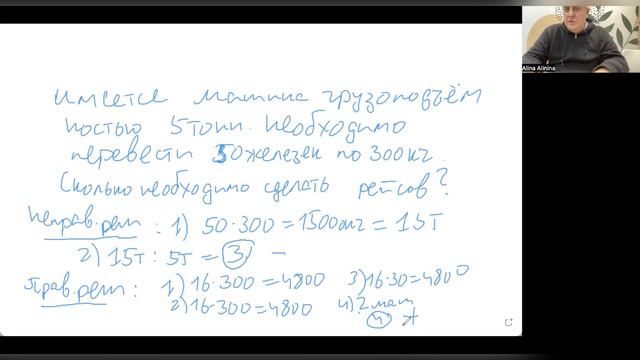 Имеется машина грузоподъём
ностью 5 тонн. Необходимо
перевести 50 железек по 300 кг.
Сколько необходимо сделать рейсов?
Неправ. реш : 1) 50·300 = 15000 кг = 15т
2) 15т : 5т = 3 -
Прав. реш : 1) 16·300 = 4800
2) 16·300 = 4800
3) 16·30 = 4800
4) 2
4 +
Alina Alinina